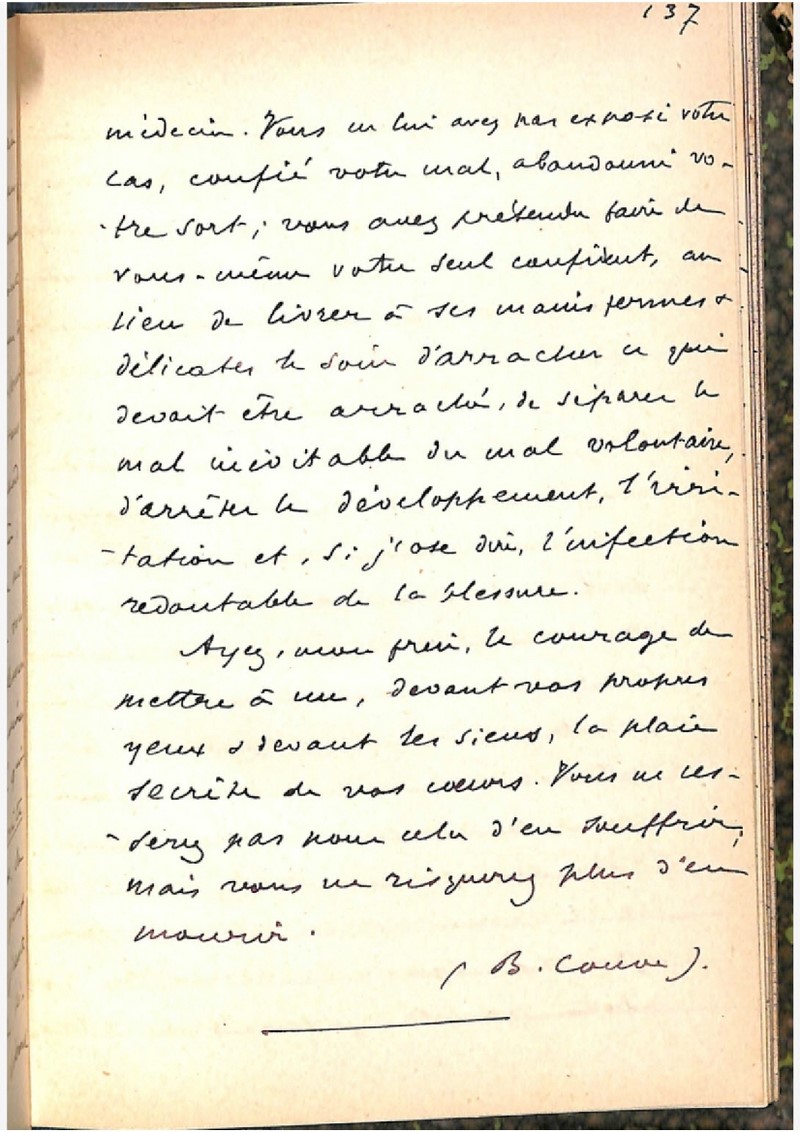 137
médecin. Vous ne lui avez pas exposé votre
cas, confié votre mal, abandonné vo-
-tre sort ; vous avez prétendu faire de
vous-même votre seul confident, au
lieu de livrer à ses mains fermes &
délicates le soin d'arracher ce qui
devait être arraché, de séparer le
mal inévitable du mal volontaire,
d'arrêter le développement, l'irri-
-tation et, si j'ose dire, l'infection
redoutable de la blessure.
Ayez, mon frère, le courage de
mettre à nu, devant vos propres
yeux & devant les siens, la plaie
secrète de vos cœurs. Vous ne ces-
-serez pas pour cela d'en souffrir,
mais vous ne risquerez plus d'en
mourir.
( B. Couve ).